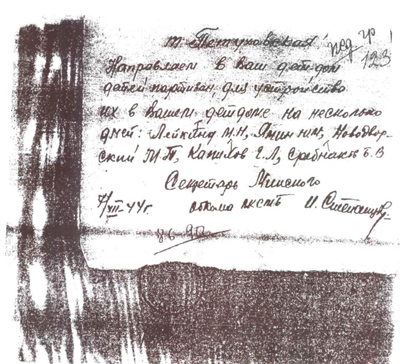 т. Петуховская!
пед гр
123
Направляем в Ваш детдом
детей партизан, для устройства
их в вашем детдоме на несколько
дней: Лейкина М.Н, Ямин Н.М, Новодвор-
ский М.П, Капилов Е.Л, Срабнаит Б.В
Секретарь Минского
7/VII-44г. обкома лксмб И. Степанищев